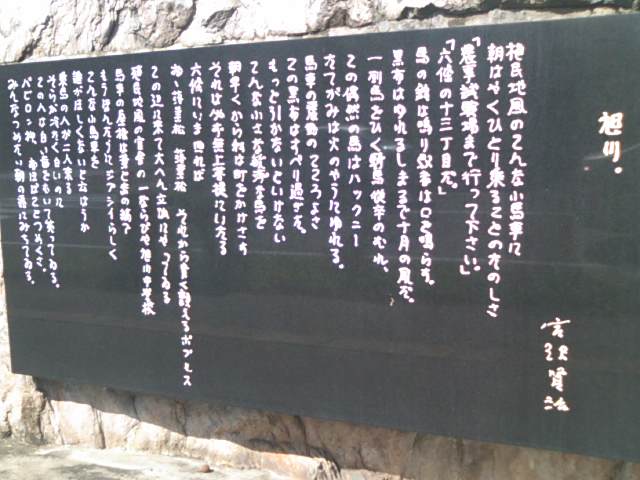 旭川。
宮沢賢治
植民地風のこんな小馬車に
朝はやくひとり乗ることのたのしさ
「農事試験場まで行って下さい。」
「六條の十三丁目だ。」
馬の鈴は鳴り馭者は口を鳴らす。
黒布はゆれるしまるで十月の風だ。
一列馬をひく騎馬従卒のむれ、
この偶然の馬はハックニー
たてがみは火のやうにゆれる。
馬車の震動のこころよさ
この黒布はすべり過ぎた。
もっと引かないといけない
こんな小さな敏渉な馬を
朝早くから私は町をかけさす
それは必ず無上菩提にいたる
六條にいま曲れば
おゝ落葉松 落葉松 それから青く顫えるポプルス
この辺に来て大へん立派にやってゐる
殖民地風の官舎の一ならびや旭川中学校
馬車の屋根は黄と赤の縞で
もうほんたうにジプシイらしく
こんな小馬車を
誰がほしくないと云はうか。
乗馬の人が二人来る
そらが冷たく白いのに
この人は白い歯をむいて笑ってゐる。
バビロン柳、おほばことつめくさ。
みんなつめたい朝の露にみちてゐる。